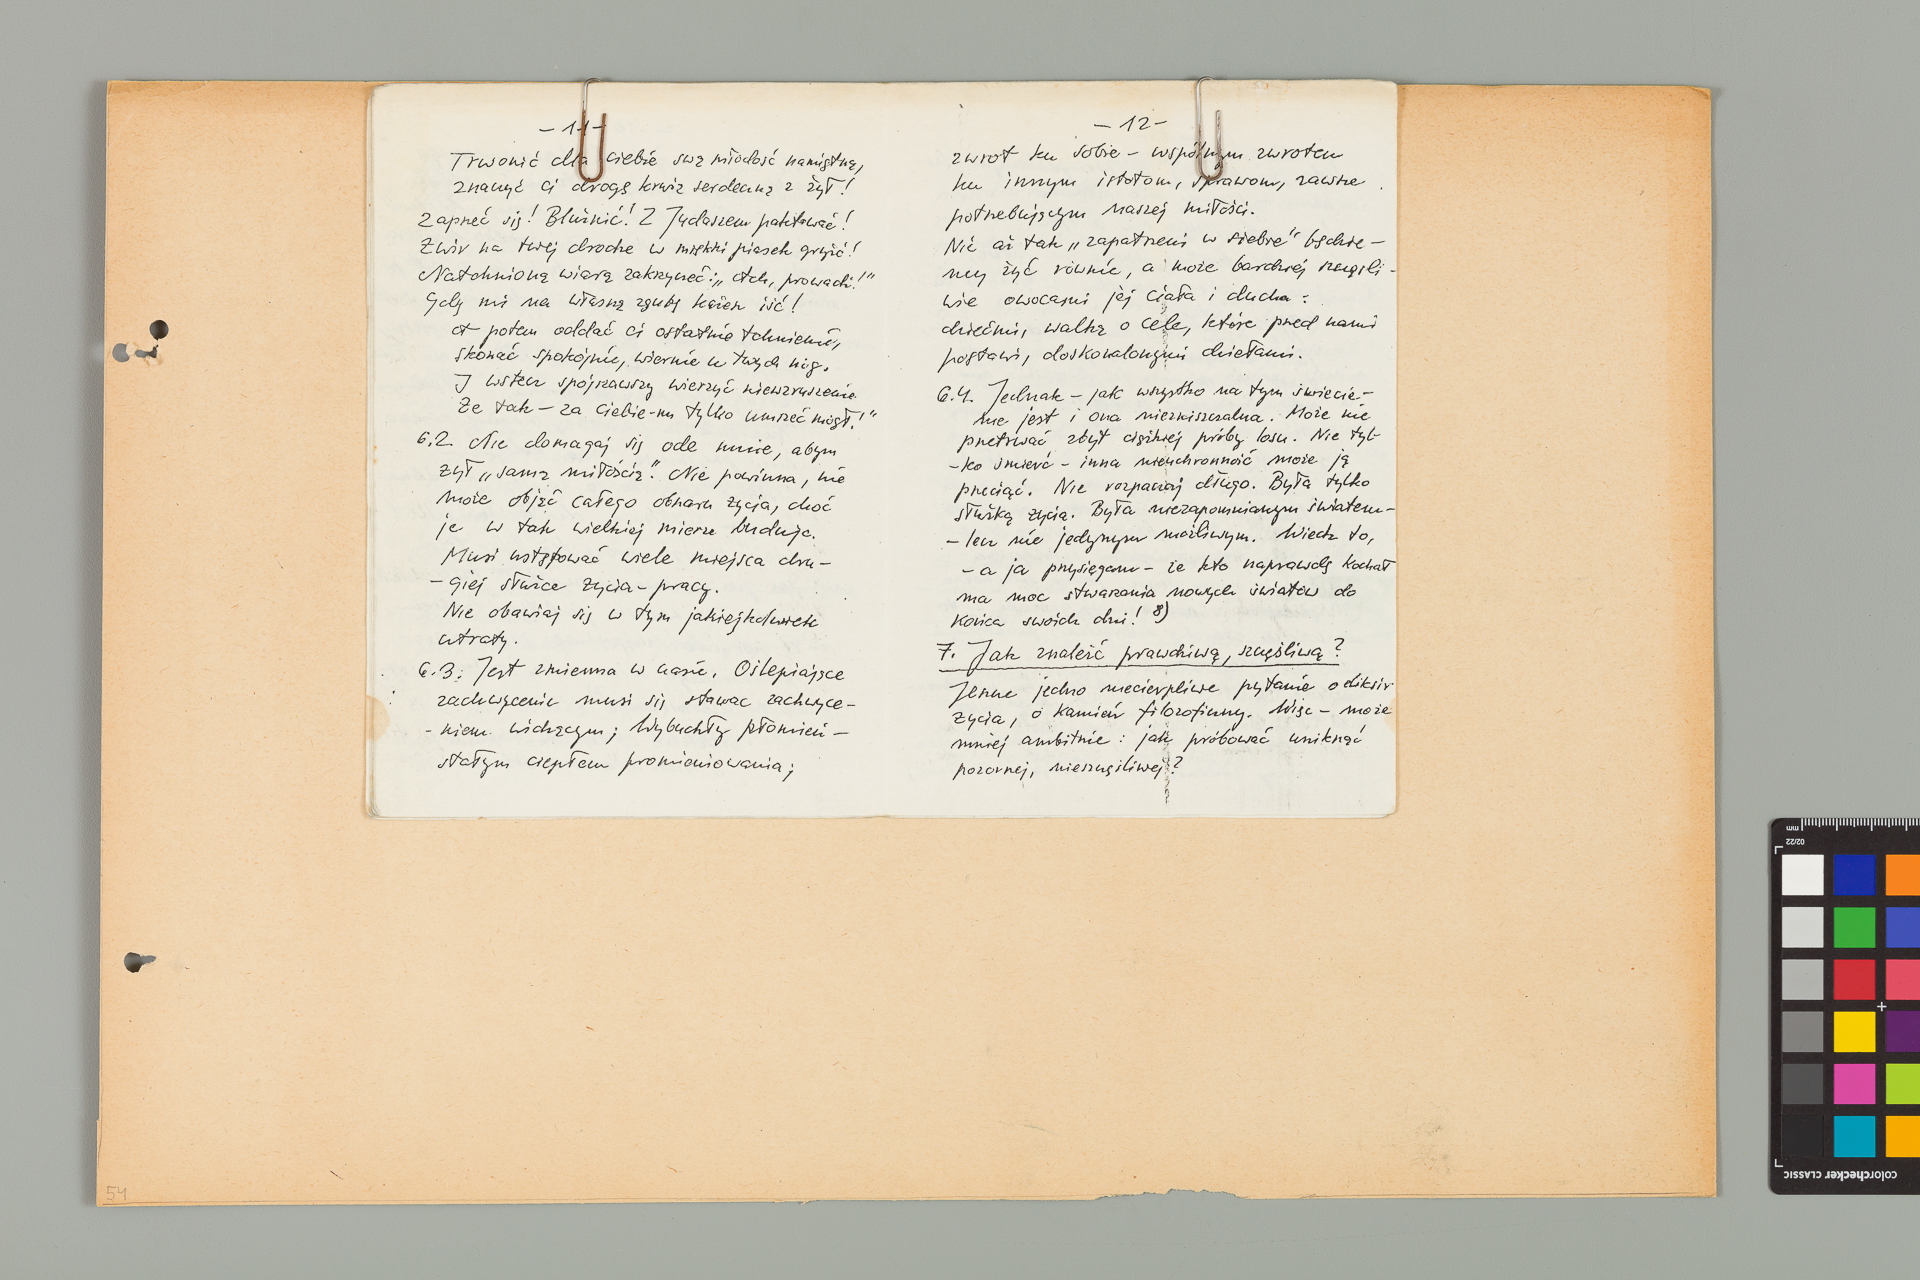 - 11 -
Trwonić dla ciebie swą młodość namiętną,
Znaczyć ci drogę krwią serdeczną z żył!
Zaprzeć się! Bluźnić! Z Judaszem paktować!
Żwir na twej drodze w miękki piasek gryźć!
Natchnioną wiarą zakrzyczeć: „Ach, prowadź!"
Gdy mi na własną zgubę każesz iść!
A potem oddać ci ostatnie tchnienie,
skonać spokojnie, wiernie u twych nóg.
I wstecz spojrzawszy wierzyć niewzruszenie
Że tak - za ciebie-m tylko umrzeć mógł!"
6.2. Nie domagaj się ode mnie, abym
żył „samą miłością". Nie powinna, nie
może objąć całego obszaru życia, choć
je w tak wielkiej mierze buduje.
Musi ustępować wiele miejsca dru-
- giej służce życia - pracy.
Nie obawiaj się w tym jakiejkolwiek
utraty.
6.3. Jest zmienna w czasie. Oślepiające
zachwycenie musi się stawać zachwyce-
- niem widzącym; wybuchły płomień -
stałym ciepłem promieniowania;
- 12 -
zwrot ku sobie - wspólnym zwrotem
ku innym istotom, sprawom, zawsze
potrzebującym naszej miłości.
Nie aż tak „zapatrzeni w siebie" będzie-
my żyć równie, a może bardziej szczęśli-
wie owocami jej ciała i ducha:
dziećmi, walką o cele, które przed nami
postawi, doskonalonymi dziełami.
6.4. Jednak - jak wszystko na tym świecie -
nie jest i ona niezniszczalna. Może nie
przetrwać zbyt ciężkiej próby losu. Nie tyl-
- ko śmierć - inna nieuchronność może ją
przeciąć. Nie rozpaczaj długo. Była tylko
służką życia. Była niezapomnianym światem -
- lecz nie jedynym możliwym. Wiedz to,
- a ja przysięgam - że kto naprawdę kochał
ma moc stwarzania nowych światów do
końca swoich dni! 8)
7. Jak znaleźć prawdziwą, szczęśliwą?
Jeszcze jedno niecierpliwe pytanie o eliksir
życia, o kamień filozoficzny. Więc - może
mniej ambitnie: jak próbować uniknąć
pozornej, nieszczęśliwej?
54
mm
02/22
colorchecker CLASSIC